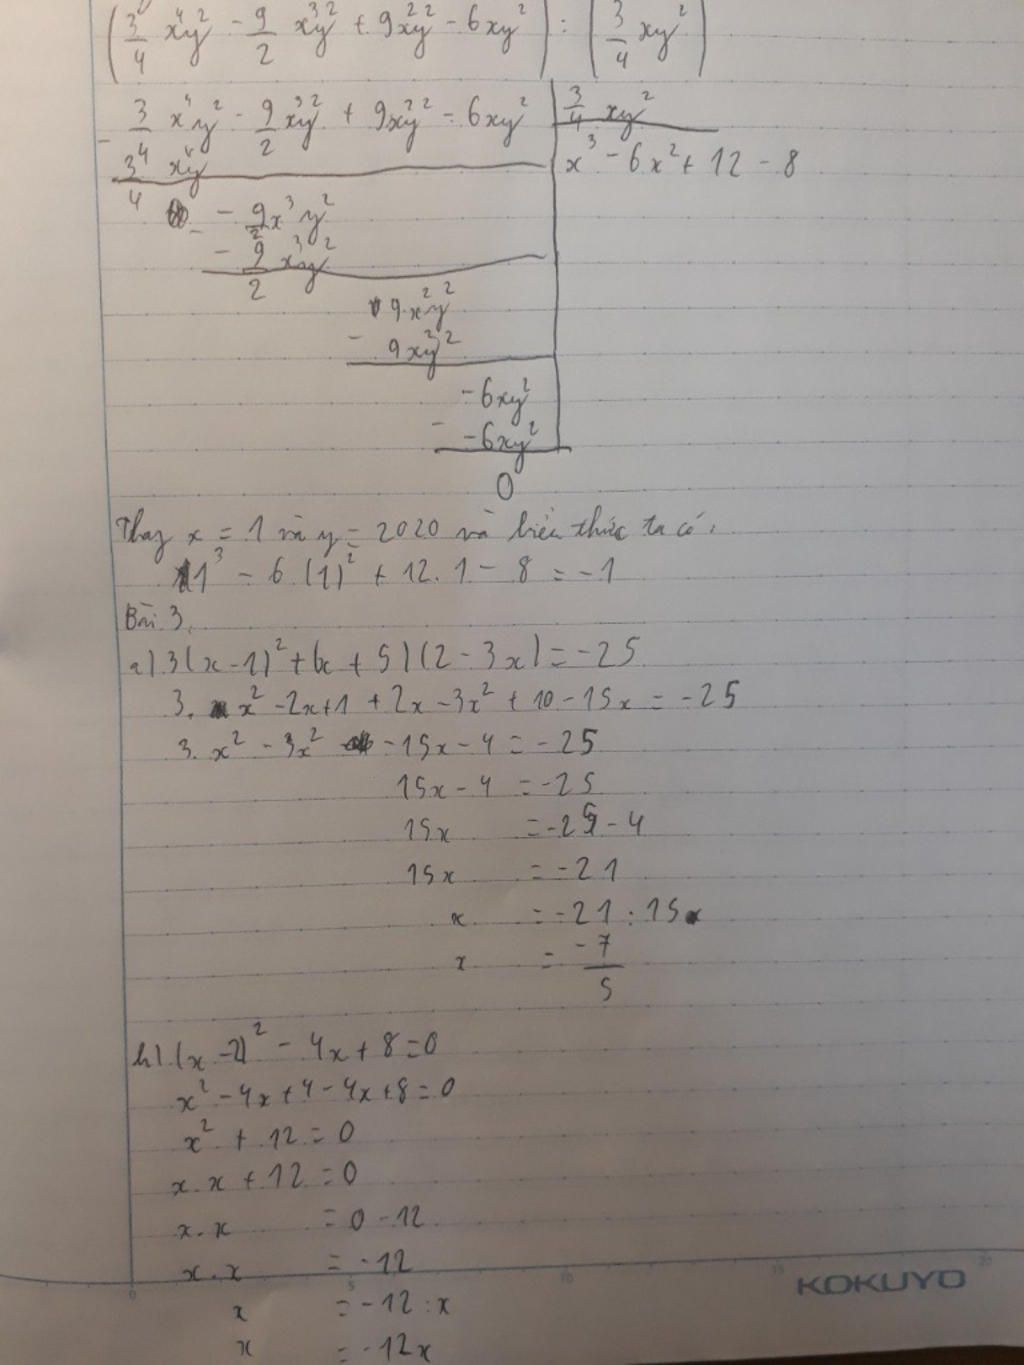 (3/4 x⁴y² - 9/2 x³y² + 9x²y² - 6xy²) : (3/4 xy²)
- 3/4 x⁴y² - 9/2 x³y² + 9x²y² - 6xy² | 3/4 xy²
3/4 x⁴y | x³ - 6x² + 12 - 8
- - 9/2 x³y²
- 9/2 x³y²
9x²y²
- 9x²y²
- 6xy²
- - 6xy²
0
Thay x = 1 và y = 2020 và biểu thức ta có:
1³ - 6(1)² + 12.1 - 8 = -1
Bài 3,
a) 3(x-1)² + (x + 5)(2 - 3x) = -25
3. x² - 2x + 1 + 2x - 3x² + 10 - 15x = -25
3. x² - 3x² - 15x - 4 = -25
15x - 4 = -25
15x = -25 - 4
15x = -21
x = -21 : 15
x = -7/5
b) (x - 2)² - 4x + 8 = 0
x² - 4x + 4 - 4x + 8 = 0
x² + 12 = 0
x.x + 12 = 0
x.x = 0 - 12
x.x = -12
x = -12 : x
x = -12x
KOKUYO